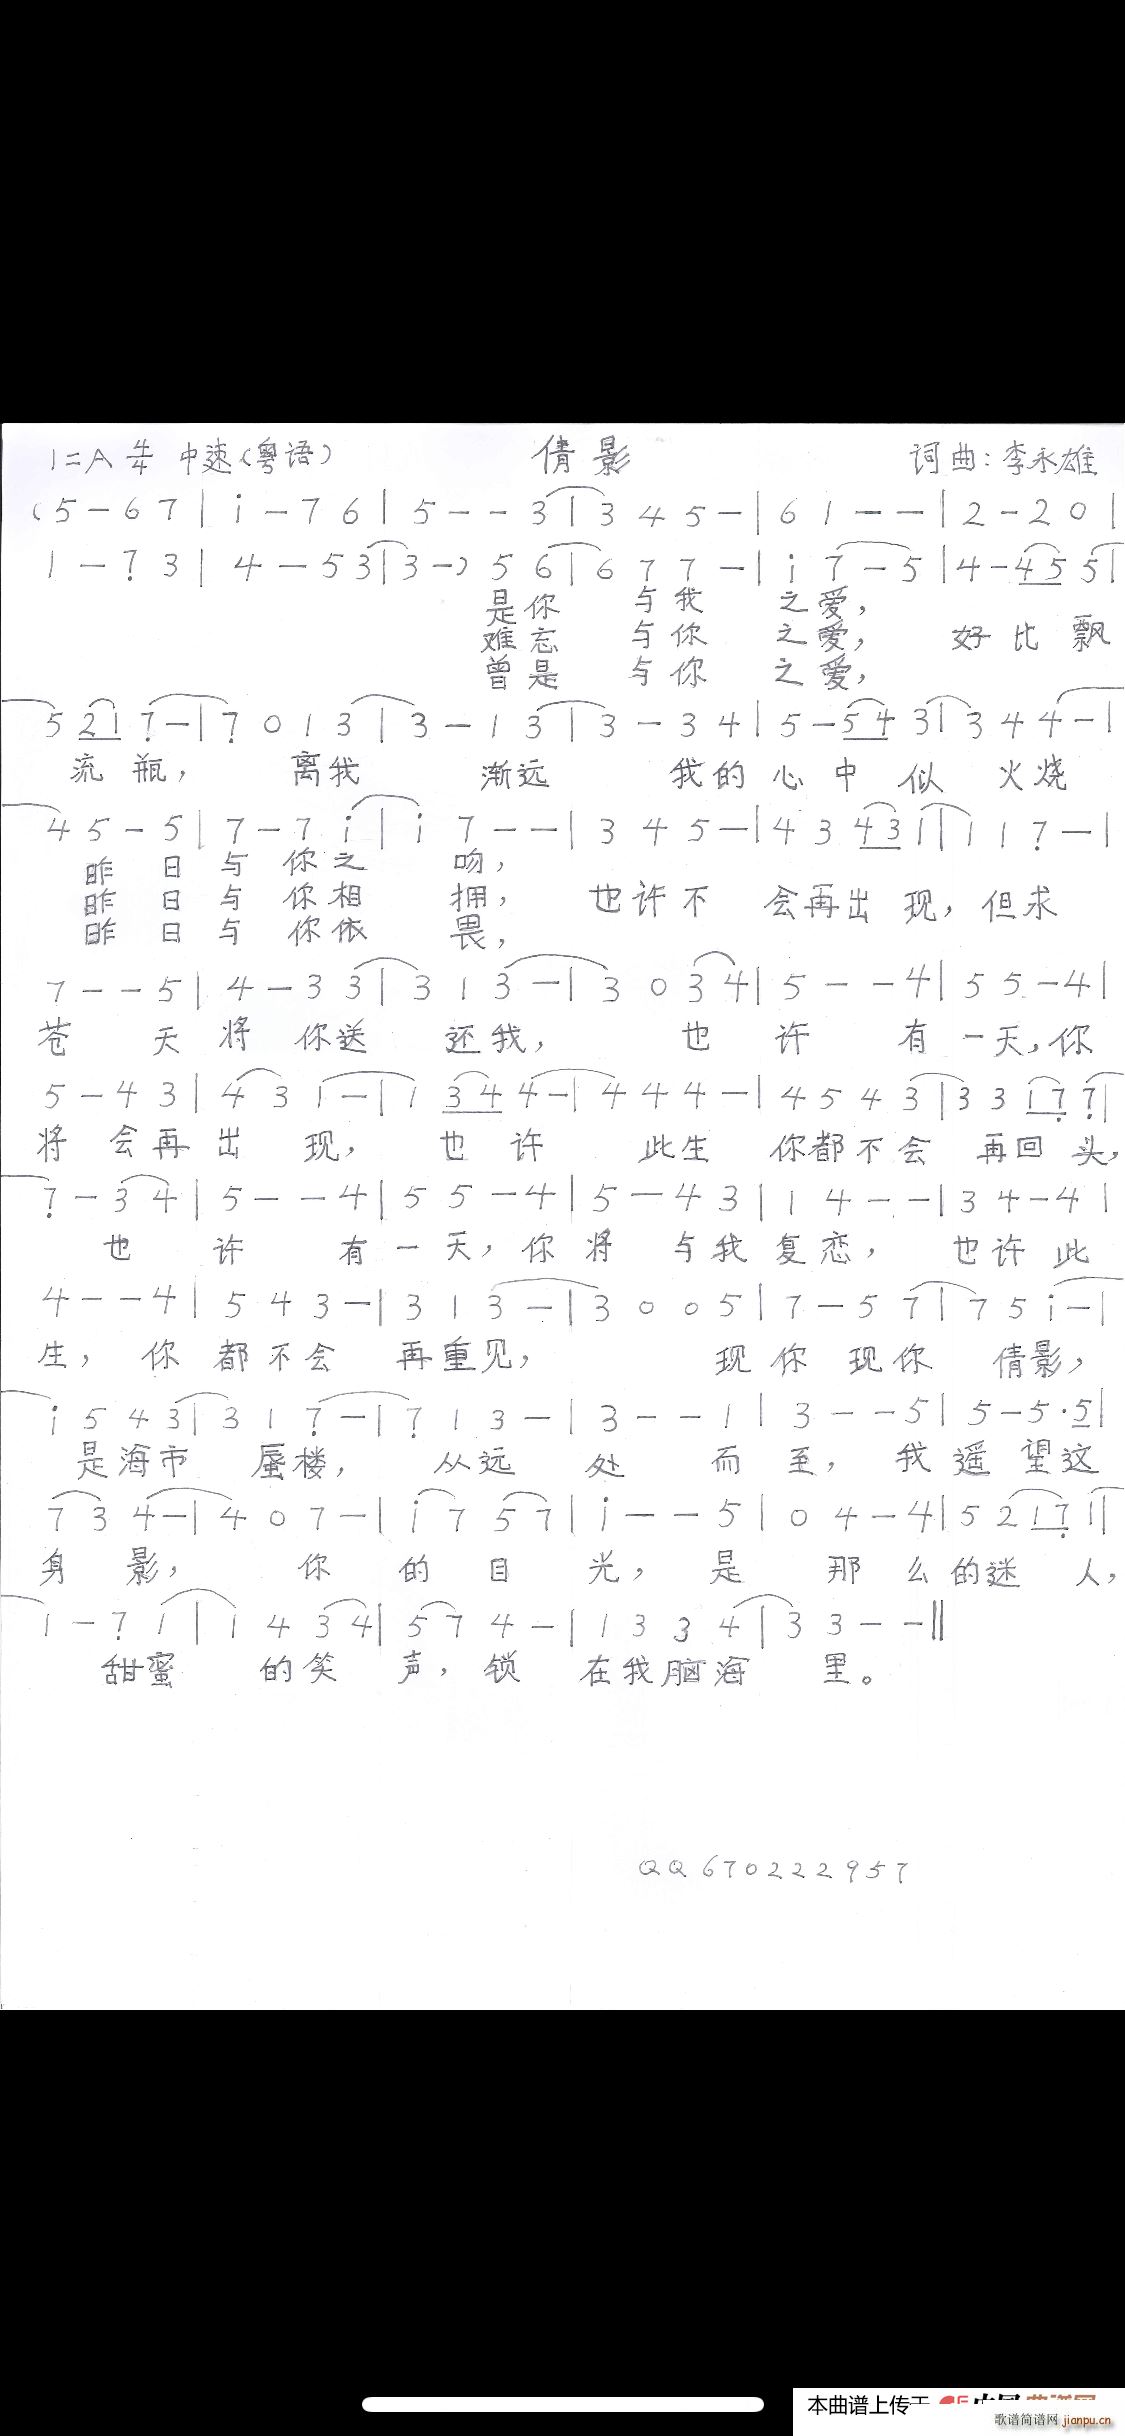 1=A 4/4 中速（粤语） 倩影 词曲：李永雄
（5 – 6 7 | i – 7 6 | 5 – – 3 | 3 4 5 – | 6 1 – – | 2 – 2 0 |
1 – 7̣ 3 | 4 – 5 3 | 3 –） 5 6 | 6 7 7 – | i 7 – 5 | 4 – 4 5 5 |
是你 与我 之爱，
难忘 与你 之爱， 好比飘
曾是 与你 之爱，
5 2 1 7̣ – | 7̣ 0 1 3 | 3 – 1 3 | 3 – 3 4 | 5 – 5 4 3 | 3 4 4 – |
流瓶， 离我 渐远 我的心中似 火烧
4 5 – 5 | 7 – 7 i | i 7 – – | 3 4 5 – | 4 3 4 3 1 | 1 1 7̣ – |
昨日与你之 吻，
昨日与你相 拥， 也许不 会再出现，但求
昨日与你依 畏，
7 – – 5 | 4 – 3 3 | 3 1 3 – | 3 0 3 4 | 5 – – 4 | 5 5 – 4 |
苍 天 将 你送 还我， 也 许 有 一天，你
5 – 4 3 | 4 3 1 – | 1 3 4 4 – | 4 4 4 – | 4 5 4 3 | 3 3 1 7̣ 7̣ |
将 会再 出 现， 也 许 此生 你都不会 再回头，
7̣ – 3 4 | 5 – – 4 | 5 5 – 4 | 5 – 4 3 | 1 4 – – | 3 4 – 4 |
也 许 有一天，你将 与我复恋， 也许此
4 – – 4 | 5 4 3 – | 3 1 3 – | 3 0 0 5 | 7 – 5 7 | 7 5 i – |
生， 你 都不会 再重见， 现你 现你 倩影，
i 5 4 3 | 3 1 7̣ – | 7̣ 1 3 – | 3 – – 1 | 3 – – 5 | 5 – 5 · 5 |
是海市 蜃楼， 从远 处 而至， 我遥望这
7 3 4 – | 4 0 7 – | i 7 5 7 | i – – 5 | 0 4 – 4 | 5 2 1 7̣ 1 |
身 影， 你 的目 光，是 那 么的迷 人，
1 – 7̣ 1 | 1 4 3 4 | 5 7 4 – | 1 3 3 4 | 3 3 – – ‖
甜蜜 的笑 声，锁 在我脑海 里。
QQ 670222957
本曲谱上传于
歌谱简谱网 jianpu.cn